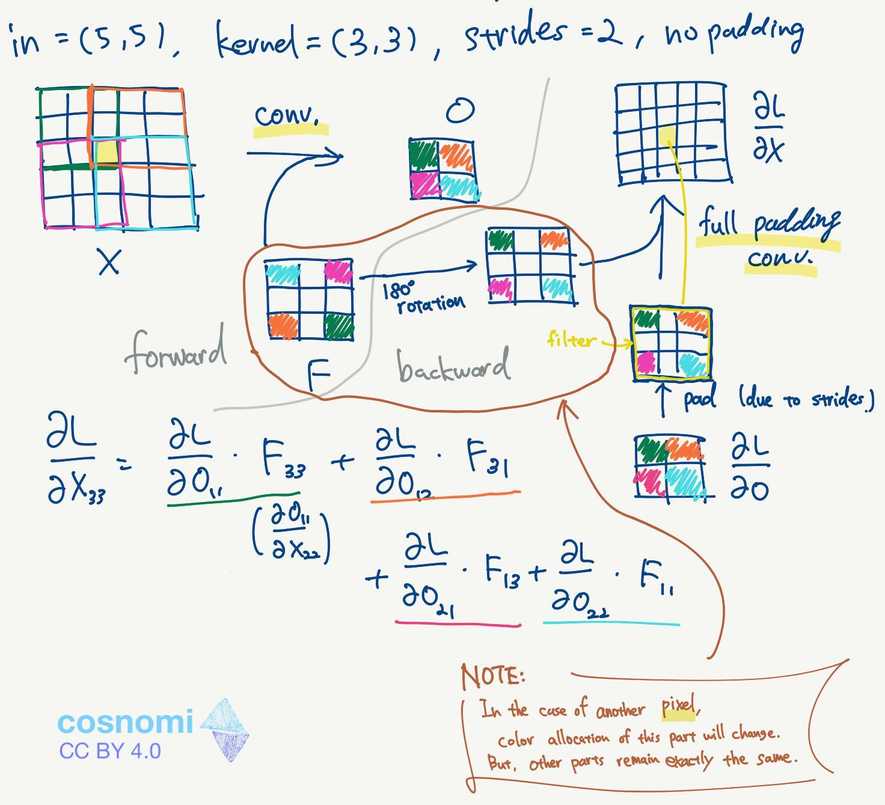 in = (5,5), kernel = (3,3), strides = 2, no padding
conv.
O
∂L
∂X
X
full padding
conv.
180°
rotation
filter
forward
F
backward
pad (due to strides)
∂L
∂O
∂L/∂X₃₃ = ∂L/∂O₁₁ · F₃₃ + ∂L/∂O₁₂ · F₃₁
(∂O₁₁/∂X₂₂)
+ ∂L/∂O₂₁ · F₁₃ + ∂L/∂O₂₂ · F₁₁
NOTE:
In the case of another pixel,
color allocation of this part will change.
But, other parts remain exactly the same.
cosnomi
CC BY 4.0